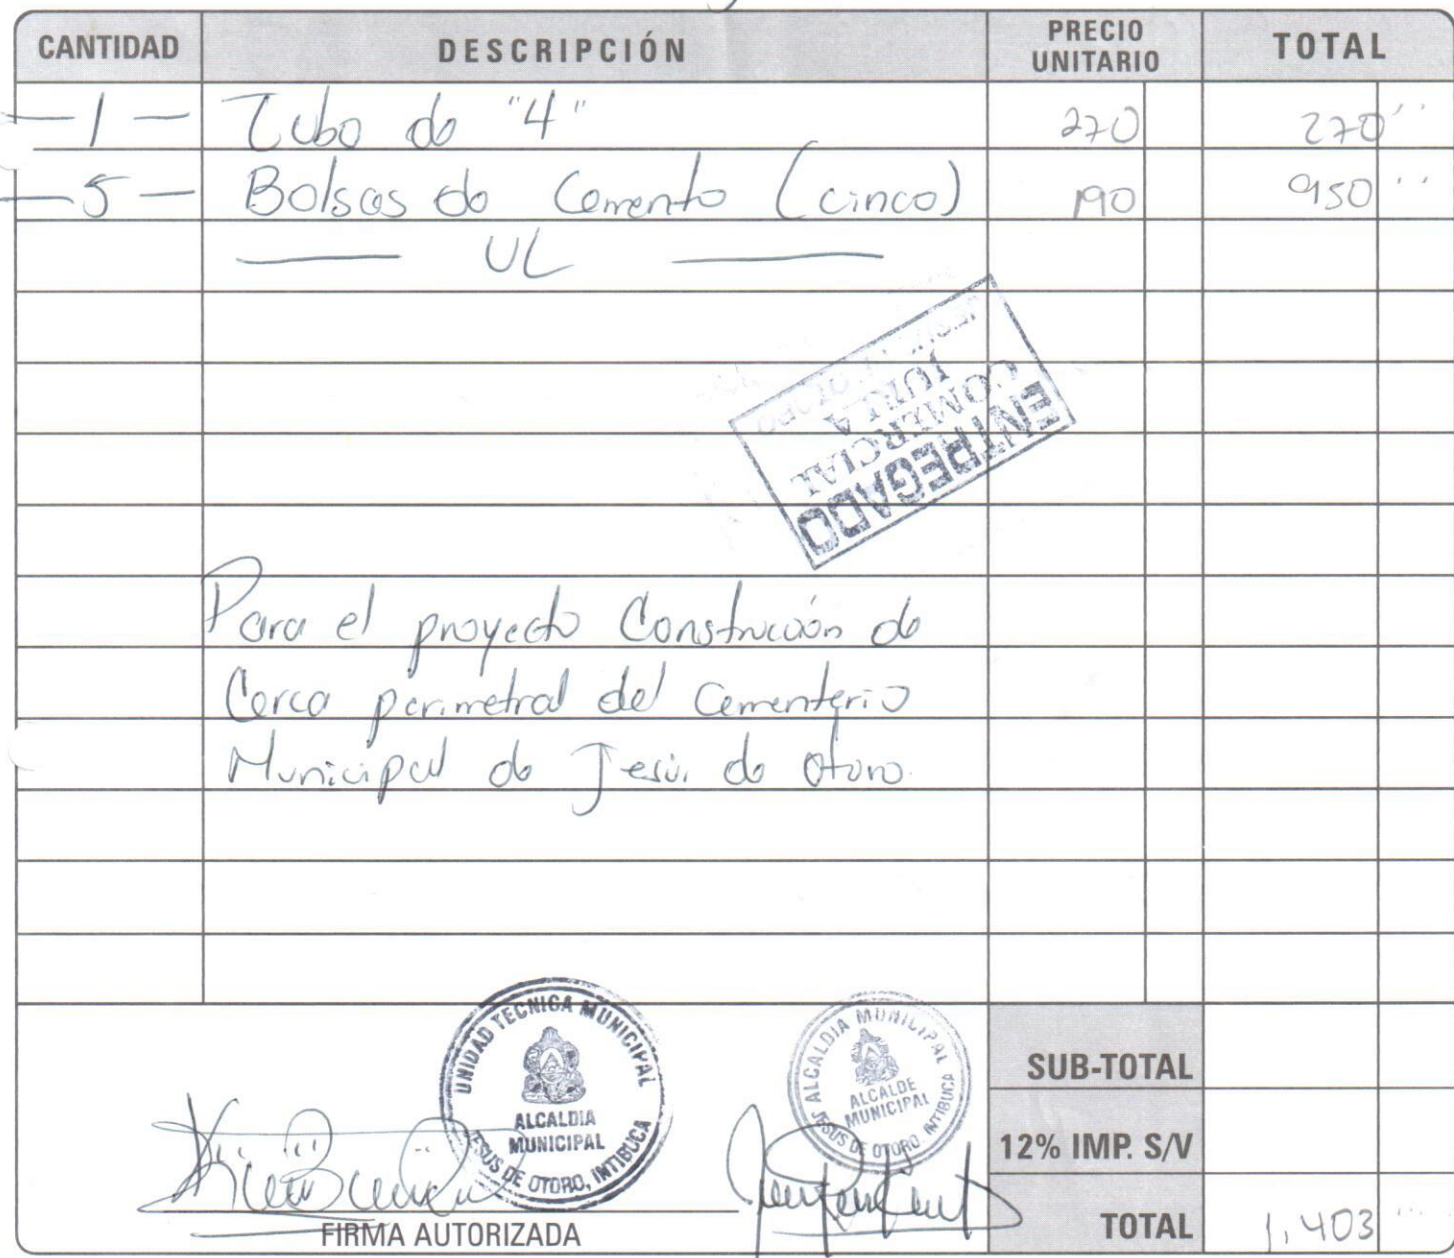 CANTIDAD DESCRIPCIÓN PRECIO UNITARIO TOTAL
— 1 — Tubo de "4" 270 270
— 5 — Bolsas de Cemento (cinco) 190 950
— UL —
ENTREGADO
COMERCIAL
JURLA
Para el proyecto Construcción de
Cerca perimetral del Cementerio
Municipal de Jesús de Otoro.
UNIDAD TECNICA MUNICIPAL
ALCALDIA
MUNICIPAL
JESUS DE OTORO, INTIBUCA
ALCALDIA MUNICIPAL
ALCALDE
MUNICIPAL
JESUS DE OTORO, INTIBUCA
SUB-TOTAL
12% IMP. S/V
FIRMA AUTORIZADA
TOTAL 1,403